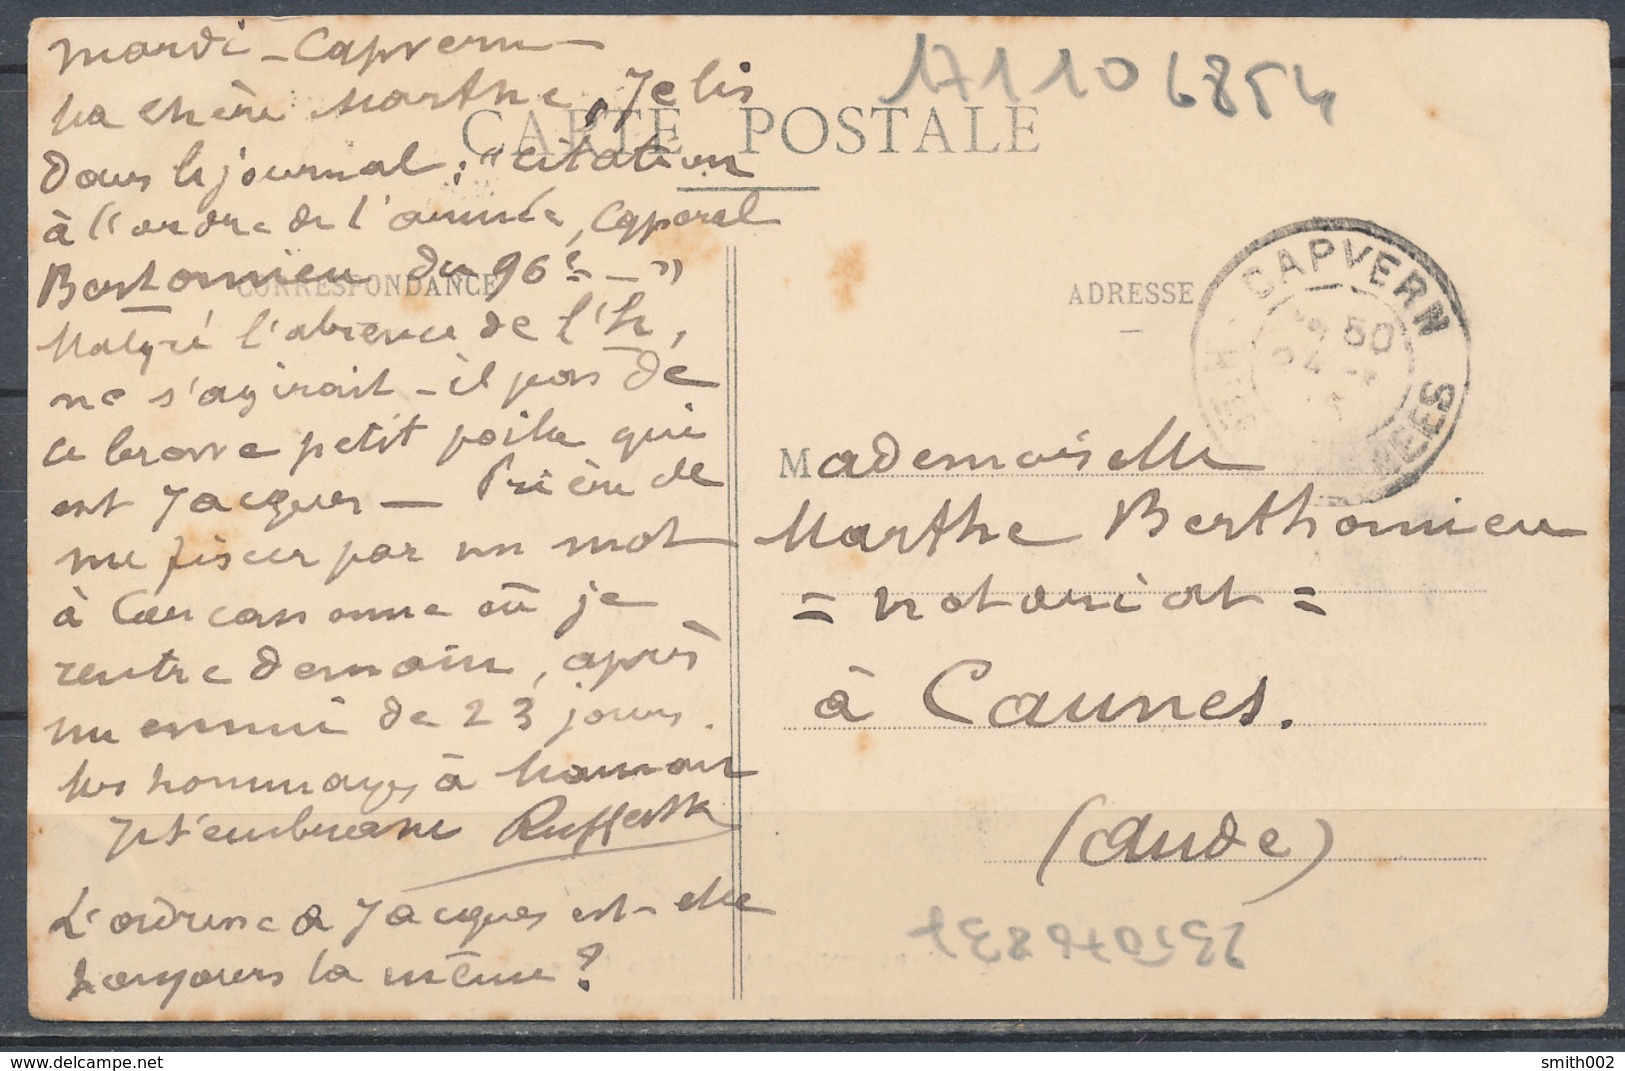 Mardi - Capvern -
Ma chère Marthe, Je lis
dans le journal : "citation
à l'ordre de l'armée, Caporal
Bertomieu du 96e - "
Malgré l'absence de l'h,
ne s'agirait-il pas de
ce brave petit poilu qui
est Jacques - Prière de
me fixer par un mot
à Carcassonne où je
rentre demain, après
un ennui de 23 jours.
Mes hommages à Maman
Je t'embrasse
L'adresse de Jacques est-elle
toujours la même ?
CARTE POSTALE
CORRESPONDANCE
ADRESSE
171106854
CAPVERN
50
24
NEES
Mademoiselle
Marthe Berthomieu
= notariat =
à Caunes.
(Aude)
smith002